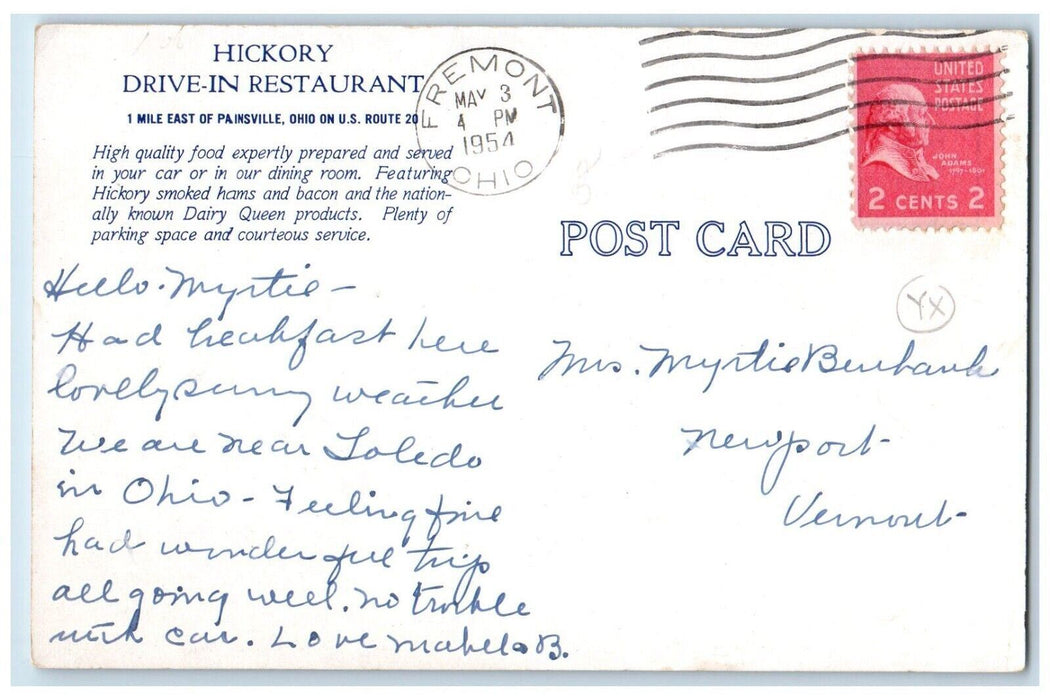 HICKORY
DRIVE-IN RESTAURANT
1 MILE EAST OF PAINSVILLE, OHIO ON U.S. ROUTE 20
High quality food expertly prepared and served
in your car or in our dining room. Featuring
Hickory smoked hams and bacon and the nation-
ally known Dairy Queen products. Plenty of
parking space and courteous service.
FREMONT
MAY 3
4 PM
1954
OHIO
UNITED
STATES
POSTAGE
JOHN
ADAMS
1797-1801
2 CENTS 2
POST CARD
YX
Hello. Myrtie -
Had breakfast here
lovely sunny weather
We are near Toledo
in Ohio - Feeling fine
had wonderful trip
all going well. no trouble
with car. Love Mabel B.
Mrs. Myrtie Burbank
Newport
Vermont